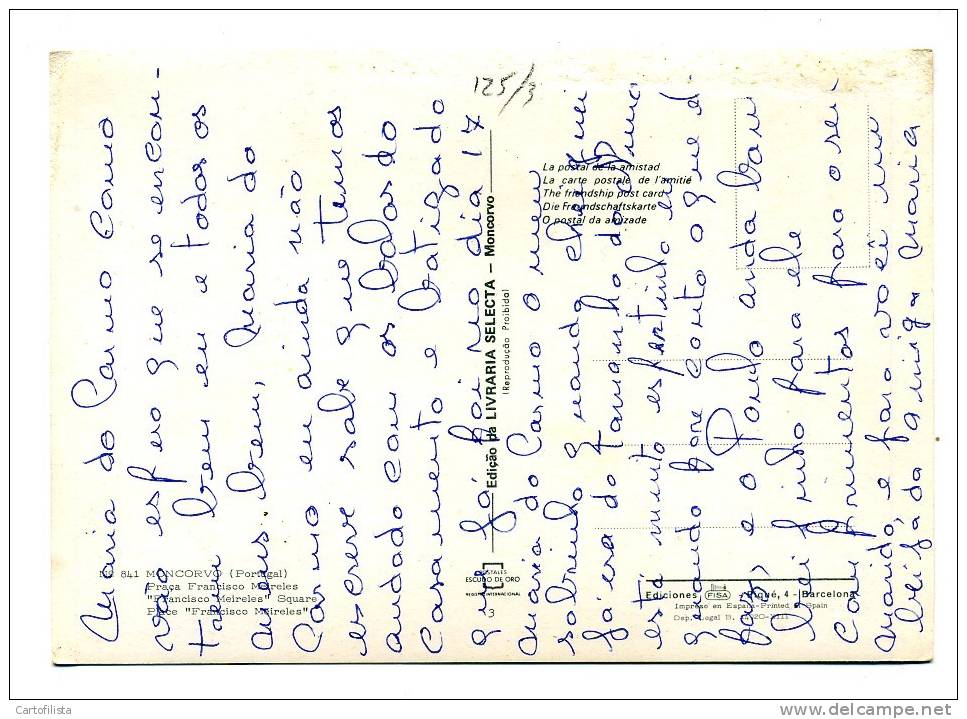 125/3
Maria do Carmo Como
vao espero que se encon-
tram bem eu e todos os
meus bem, Maria do
Carmo eu ainda não
escrevi sabe que temos
andado com os bolos do
Casamento e batizado
que já foi no dia 17
Maria do Carmo o meu
sobrinho quando chegou
já era do tamanho do
está muito espertinho eu
quando fore conto o que é
faz, e o Paulo anda bom
beijinho para ele
Comprimentos para o seu
marido, e para você um
beijo da amiga Maria
La postal de la amistad
La carte postale de l'amitié
The friendship post card
Die Freundschaftskarte
O postal da amizade
Edição da LIVRARIA SELECTA — Moncorvo
(Reprodução Proibida)
Nº 841 MONCORVO (Portugal)
Praça Francisco Meireles
"Francisco Meireles" Square
Place "Francisco Meireles"
POSTALES
ESCUDO DE ORO
REGISTRO INTERNACIONAL
3
Ediciones FISA - Piqué, 4 - Barcelona
Impreso en España-Printed in Spain
Dep. Legal B.
Cartofilista
delcampe.net